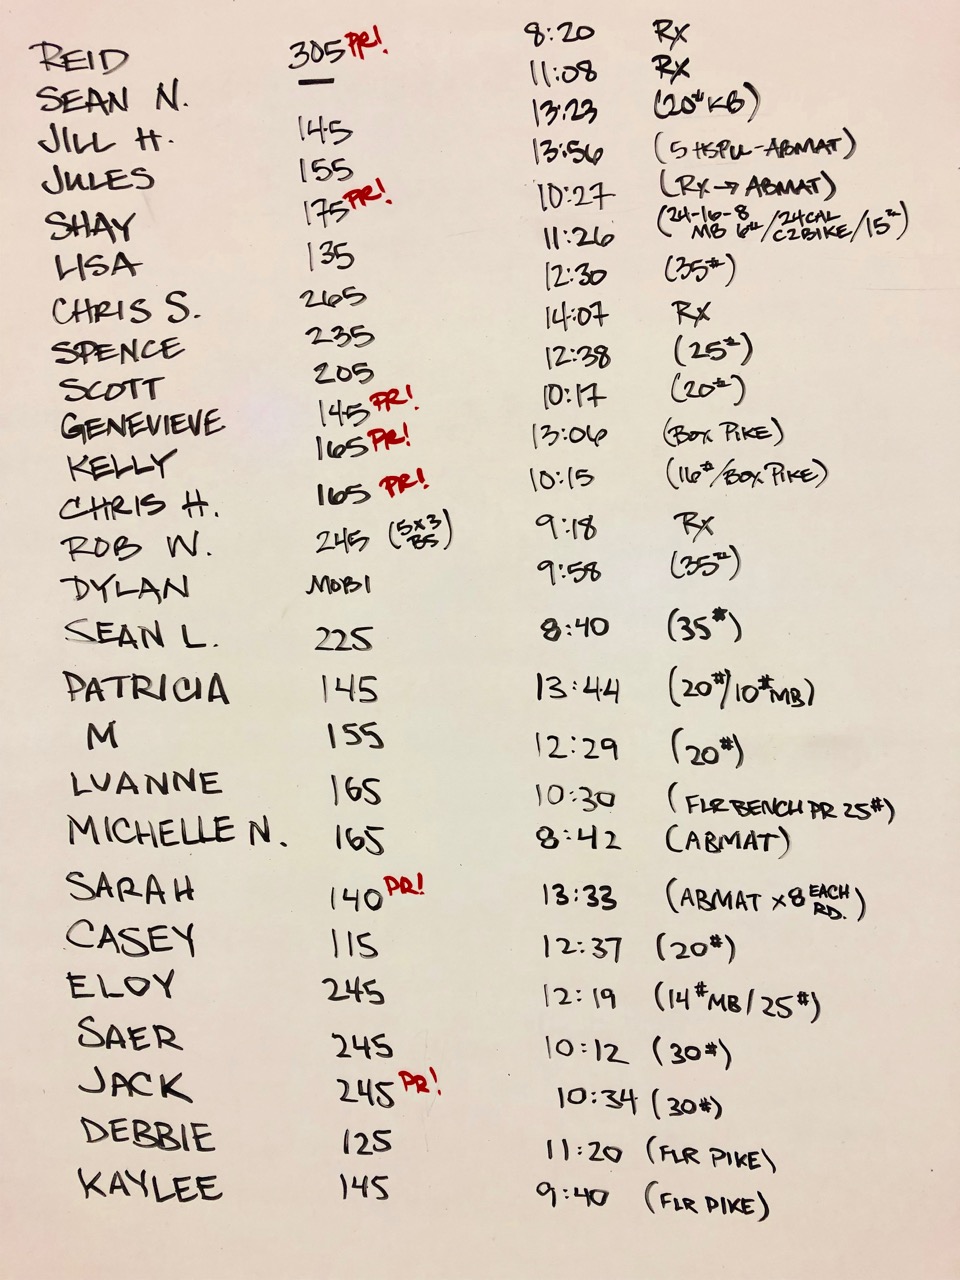 REID 305 PR! 8:20 RX
SEAN N. — 11:08 RX
JILL H. 145 13:23 (20# KB)
JULES 155 13:56 (5 HSPU-ABMAT)
SHAY 175 PR! 10:27 (RX→ABMAT)
LISA 135 11:26 (24-16-8 MB 6#/24CAL C2BIKE/15#)
CHRIS S. 265 12:30 (35#)
SPENCE 235 14:07 RX
SCOTT 205 12:38 (25#)
GENEVIEVE 145 PR! 10:17 (20#)
KELLY 165 PR! 13:06 (BOX PIKE)
CHRIS H. 165 PR! 10:15 (16#/BOX PIKE)
ROB W. 245 (5x3 BS) 9:18 RX
DYLAN MOBI 9:58 (35#)
SEAN L. 225 8:40 (35#)
PATRICIA 145 13:44 (20#/10#MB)
M 155 12:29 (20#)
LUANNE 165 10:30 (FLR BENCH PR 25#)
MICHELLE N. 165 8:42 (ABMAT)
SARAH 140 PR! 13:33 (ABMAT x8 EACH RD.)
CASEY 115 12:37 (20#)
ELOY 245 12:19 (14#MB/25#)
SAER 245 10:12 (30#)
JACK 245 PR! 10:34 (30#)
DEBBIE 125 11:20 (FLR PIKE)
KAYLEE 145 9:40 (FLR PIKE)